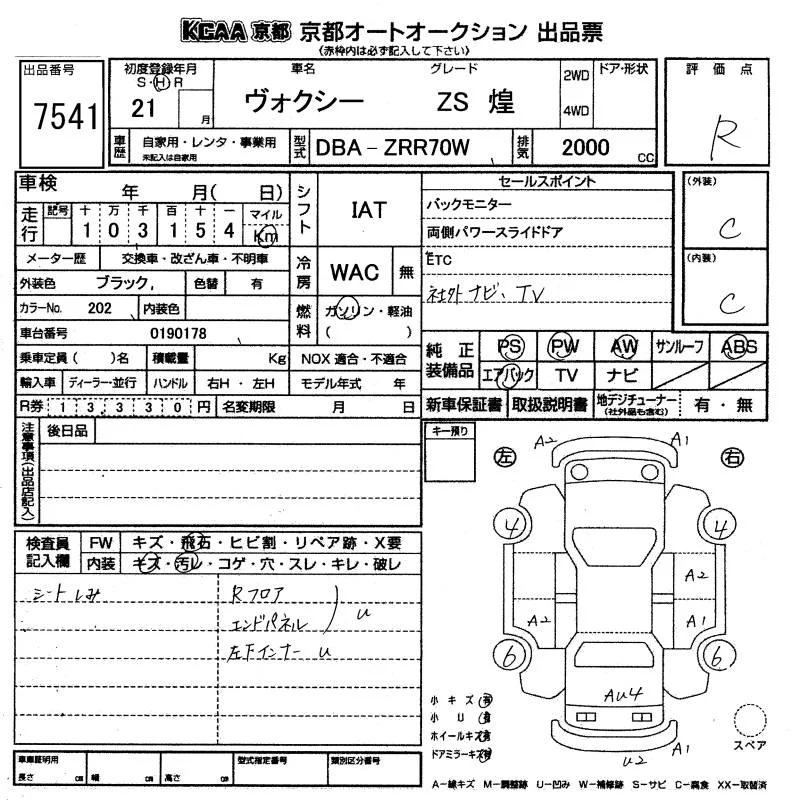 KCAA 京都 京都オートオークション 出品票
(赤枠内は必ず記入して下さい)
出品番号
7541
初度登録年月
S・H・R
21 月
車名
ヴォクシー
グレード
ZS 煌
2WD
4WD
ドア・形状
評価点
R
車歴
自家用・レンタ・事業用
未記入は自家用
型式
DBA－ZRR70W
排気
2000 CC
車検 年 月( 日)
走行
記号 十 万 千 百 十 一
1 0 3 1 5 4
マイル
Km
シフト
IAT
セールスポイント
バックモニター
両側パワースライドドア
ETC
社外ナビ、TV
(外装)
C
(内装)
C
メーター歴 交換車・改ざん車・不明車
外装色 ブラック, 色替 有
冷房
WAC 無
カラーNo. 202 内装色
燃料
ガソリン・軽油
( )
車台番号 0190178
乗車定員( )名 積載量 Kg NOX 適合・不適合
輸入車 ディーラー・並行 ハンドル 右H・左H モデル年式 年
R券 13,330円 名変期限 月 日
純正装備品
PS PW AW サンルーフ ABS
エアバック TV ナビ
新車保証書 取扱説明書 地デジチューナー
(社外品も含む)
有・無
注意事項(出品店記入)
後日品
キー預り
左
右
A2
A1
4
4
A2
A2
A1
6
6
AU4
U2
A1
検査員記入欄
FW キズ・飛石・ヒビ割・リペア跡・X要
内装 キズ・汚レ・コゲ・穴・スレ・キレ・破レ
シートしみ
Rフロア
エンドパネル
U
左下インナー U
小キズ有
小U有
ホイールキズ有
ドアミラーキズ有
スペア
車庫証明用
長さ cm 幅 cm 高さ cm
型式指定番号
類別区分番号
A－線キズ M－調整跡 U－凹み W－補修跡 S－サビ C－腐食 XX－取替済